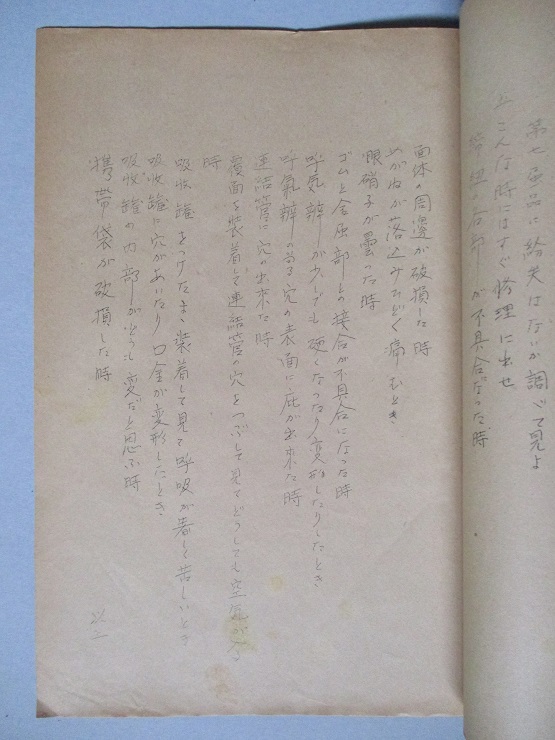 第七 属品に紛失はないか調べて見よ
八 こんな時にはすぐ修理に出せ
が不具合だつた時
面体の周邊が破損した時
めがねが落込みひどく痛むとき
眼硝子が曇つた時
ゴムと金属部との接合が不具合になつた時
呼気辨が少しでも硬くなつたり変形したりしたとき
呼氣辨の当る穴の表面に疵が出来た時
連結管に穴が出来た時
覆面を装着して連結管の穴をつぶして見てどうしても空気が入る
時
吸收罐をつけたまゝ装着して見て呼吸が著しく苦しいとき
吸收罐に穴があいたり口金が変形したとき
吸收罐の内部がどうも変だと思ふ時
携帯袋が破損した時
以上